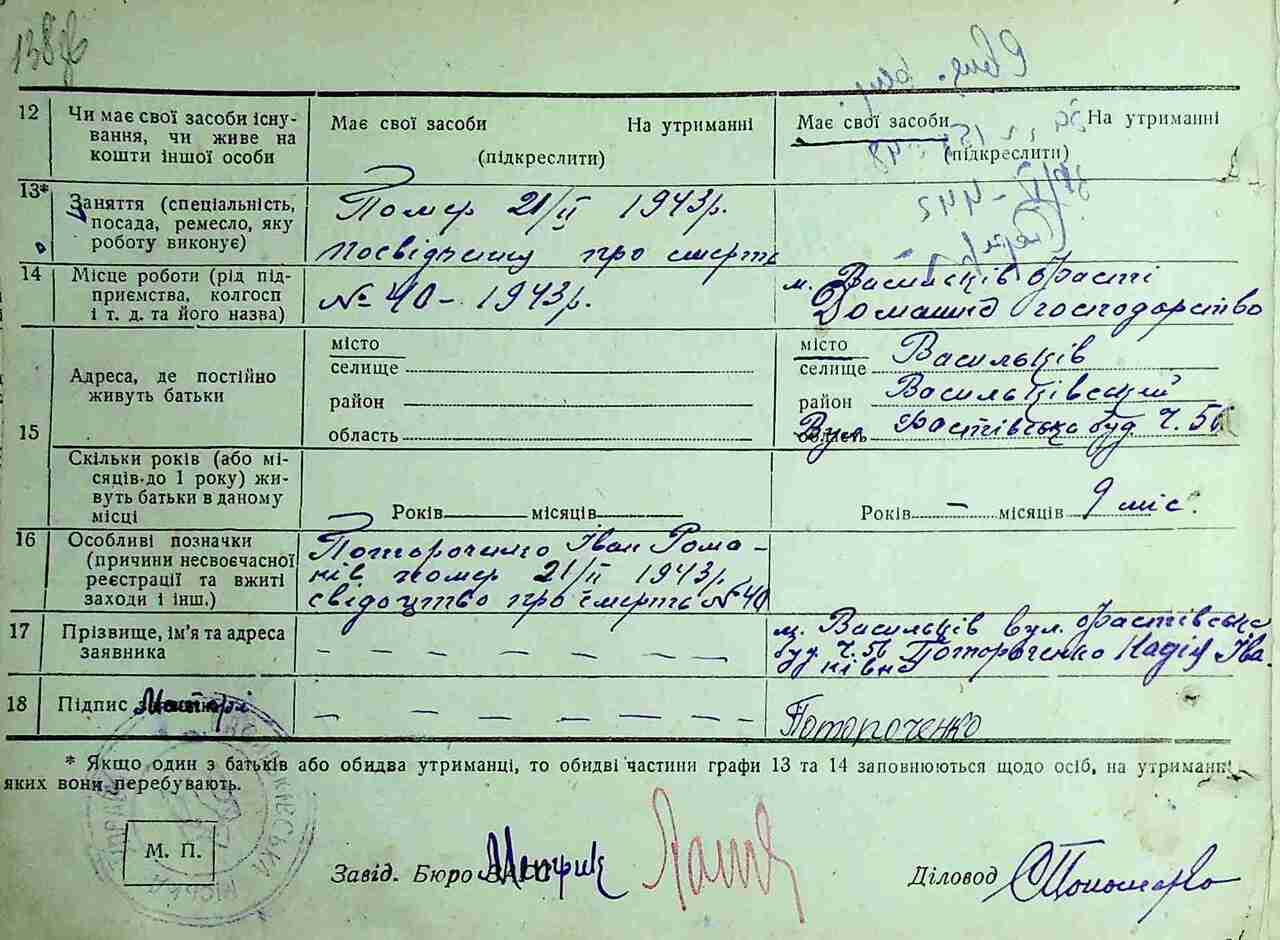 138 зв
12 Чи має свої засоби існу-
вання, чи живе на
кошти іншої особи
Має свої засоби На утриманні
(підкреслити)
Має свої засоби На утриманні
(підкреслити)
13* Заняття (спеціальність,
посада, ремесло, яку
роботу виконує)
Помер 21/II 1943р.
про смерть
14 Місце роботи (рід під-
приємства, колгосп
і т. д. та його назва)
№ 40 - 1943р.
м. Васильків
Домашнє господарство
15 Адреса, де постійно
живуть батьки
місто
селище
район
область
місто
селище Васильків
район Васильківський
область Вул Фастівська буд ч. 56
Скільки років (або мі-
сяців до 1 року) жи-
вуть батьки в даному
місці
Років місяців
Років - місяців 9 міс.
16 Особливі позначки
(причини несвоєчасної
реєстрації та вжиті
заходи і інш.)
Іван Рома-
нів помер 21/II 1943р.
свідоцтво про смерть № 40
17 Прізвище, ім'я та адреса
заявника
м. Васильків вул. Фастівська
буд. ч. 56 Потороченко Надія Іва-
нівна
18 Підпис
Потороченко
* Якщо один з батьків або обидва утриманці, то обидві частини графи 13 та 14 заповнюються щодо осіб, на утриманні
яких вони перебувають.
М. П.
Завід. Бюро ЗАГС
Діловод